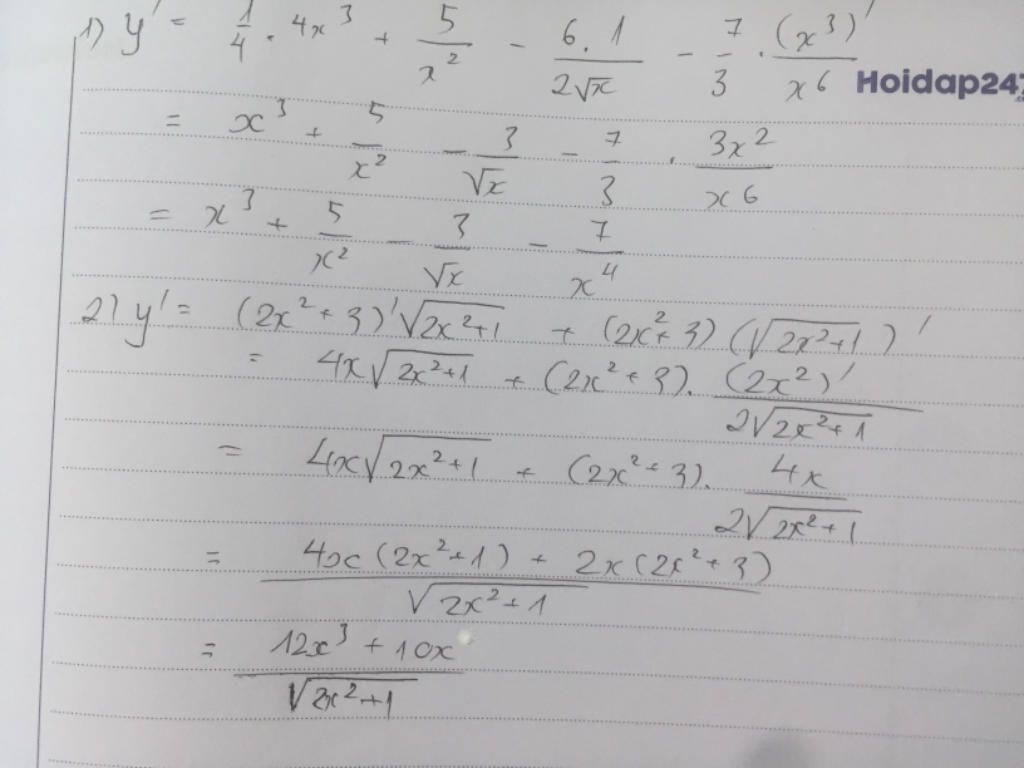 1) y' = 1/4 . 4x³ + 5/x² - 6.1/2√x - 7/3 . (x³)'/x6
Hoidap247
= x³ + 5/x² - 3/√x - 7/3 . 3x²/x6
= x³ + 5/x² - 3/√x - 7/x⁴
2) y' = (2x² + 3)'√(2x²+1) + (2x² + 3) (√(2x²+1))'
= 4x√(2x²+1) + (2x² + 3). (2x²)'/2√(2x²+1)
= 4x√(2x²+1) + (2x² + 3). 4x/2√(2x²+1)
= 4x(2x²+1) + 2x(2x²+3)/√(2x²+1)
= 12x³ + 10x/√(2x²+1)